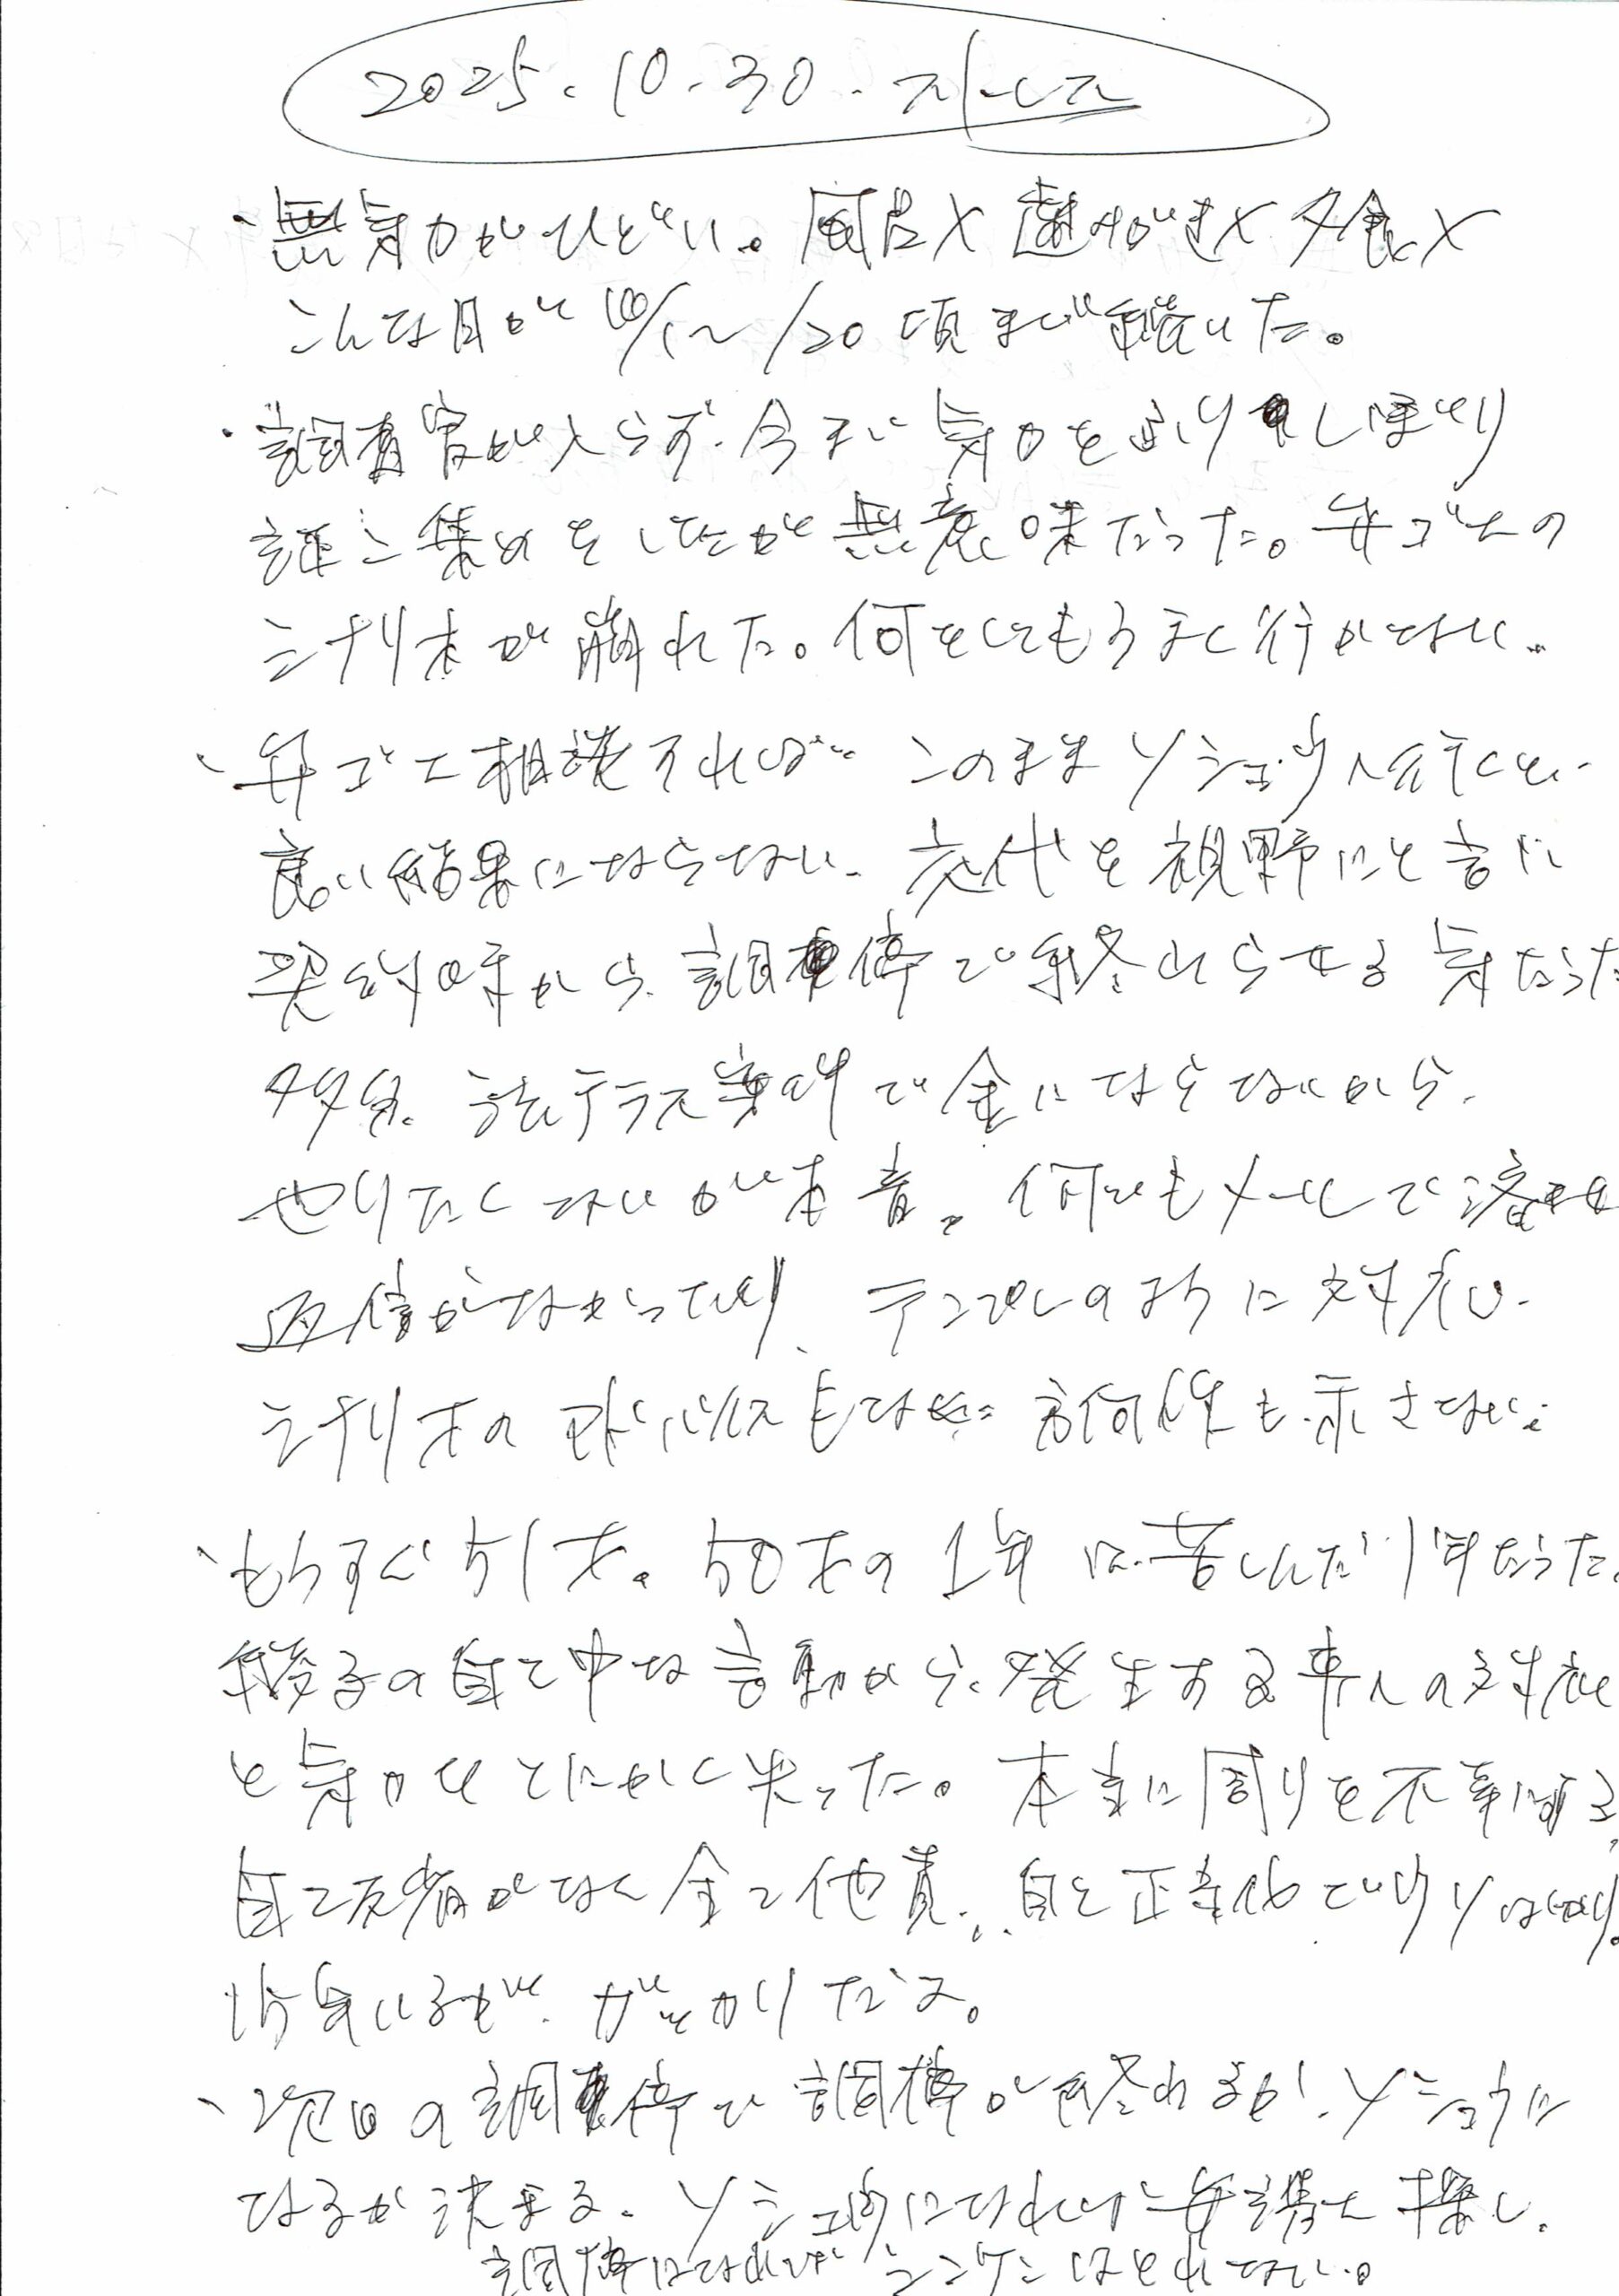 2025.10.30.
・無気力がひどい。風呂×歯みがき×夕食×
こんな日が10/1～/20頃まで続いた。
・調査官が入らず、今まで気力をふりしぼり
証こ集めをしたが無意味だった。弁ゴ士の
シナリオが崩れた。何をしてもうまく行かない…
・弁ゴ士相談すれば このままソショウへ行くと
良い結果にならない、交代を視野にと言い
契約時から、調停で終わらせる気だった
多分、法テラス案件で金にならないから、
やりたくないが本音。何でもメールで済ませ
返信がなかったり、テンプレのように対応し
シナリオの もなく 方向性も示さない。
・もうすぐ51才。50才の1年は苦しんだ1年だった。
の自こ中な言動から、発生する事への対応
と気力をとにかく失った。本当に周りを不幸にする
自こ反省がなく全て他責、自こ正当化
いるが、ガッカリだよ。
・次回の調停で調停が終わるか、ソショウに
なるか決まる。ソショウになれば弁護士探し、
調停になれば シンケンはとれない。